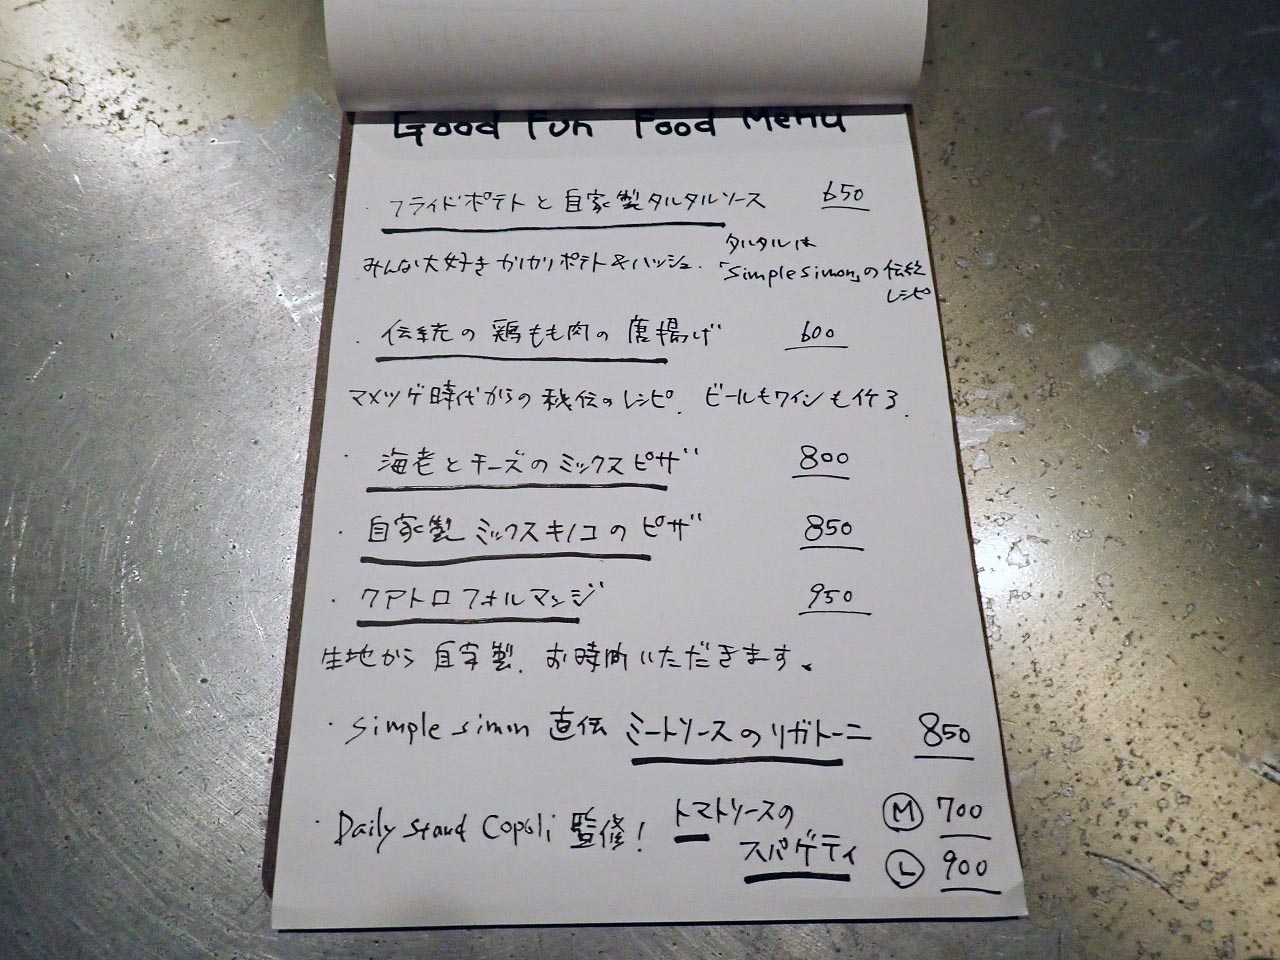 Good Fun Food Menu
・フライドポテトと自家製タルタルソース 650
みんな大好きカリカリポテト&ハッシュ. タルタルは
「simple simon」の伝統
レシピ
・伝統の鶏もも肉の唐揚げ 600
マメヅゲ時代からの秘伝のレシピ. ビールもワインも行ける.
・海老とチーズのミックスピザ 800
・自家製ミックスキノコのピザ 850
・クアトロフォルマッジ 950
生地から自家製. お時間いただきます。
・simple simon 直伝 ミートソースのリガトーニ 850
・Daily Stand Copoli 監修! トマトソースの Ⓜ 700
スパゲティ Ⓛ 900